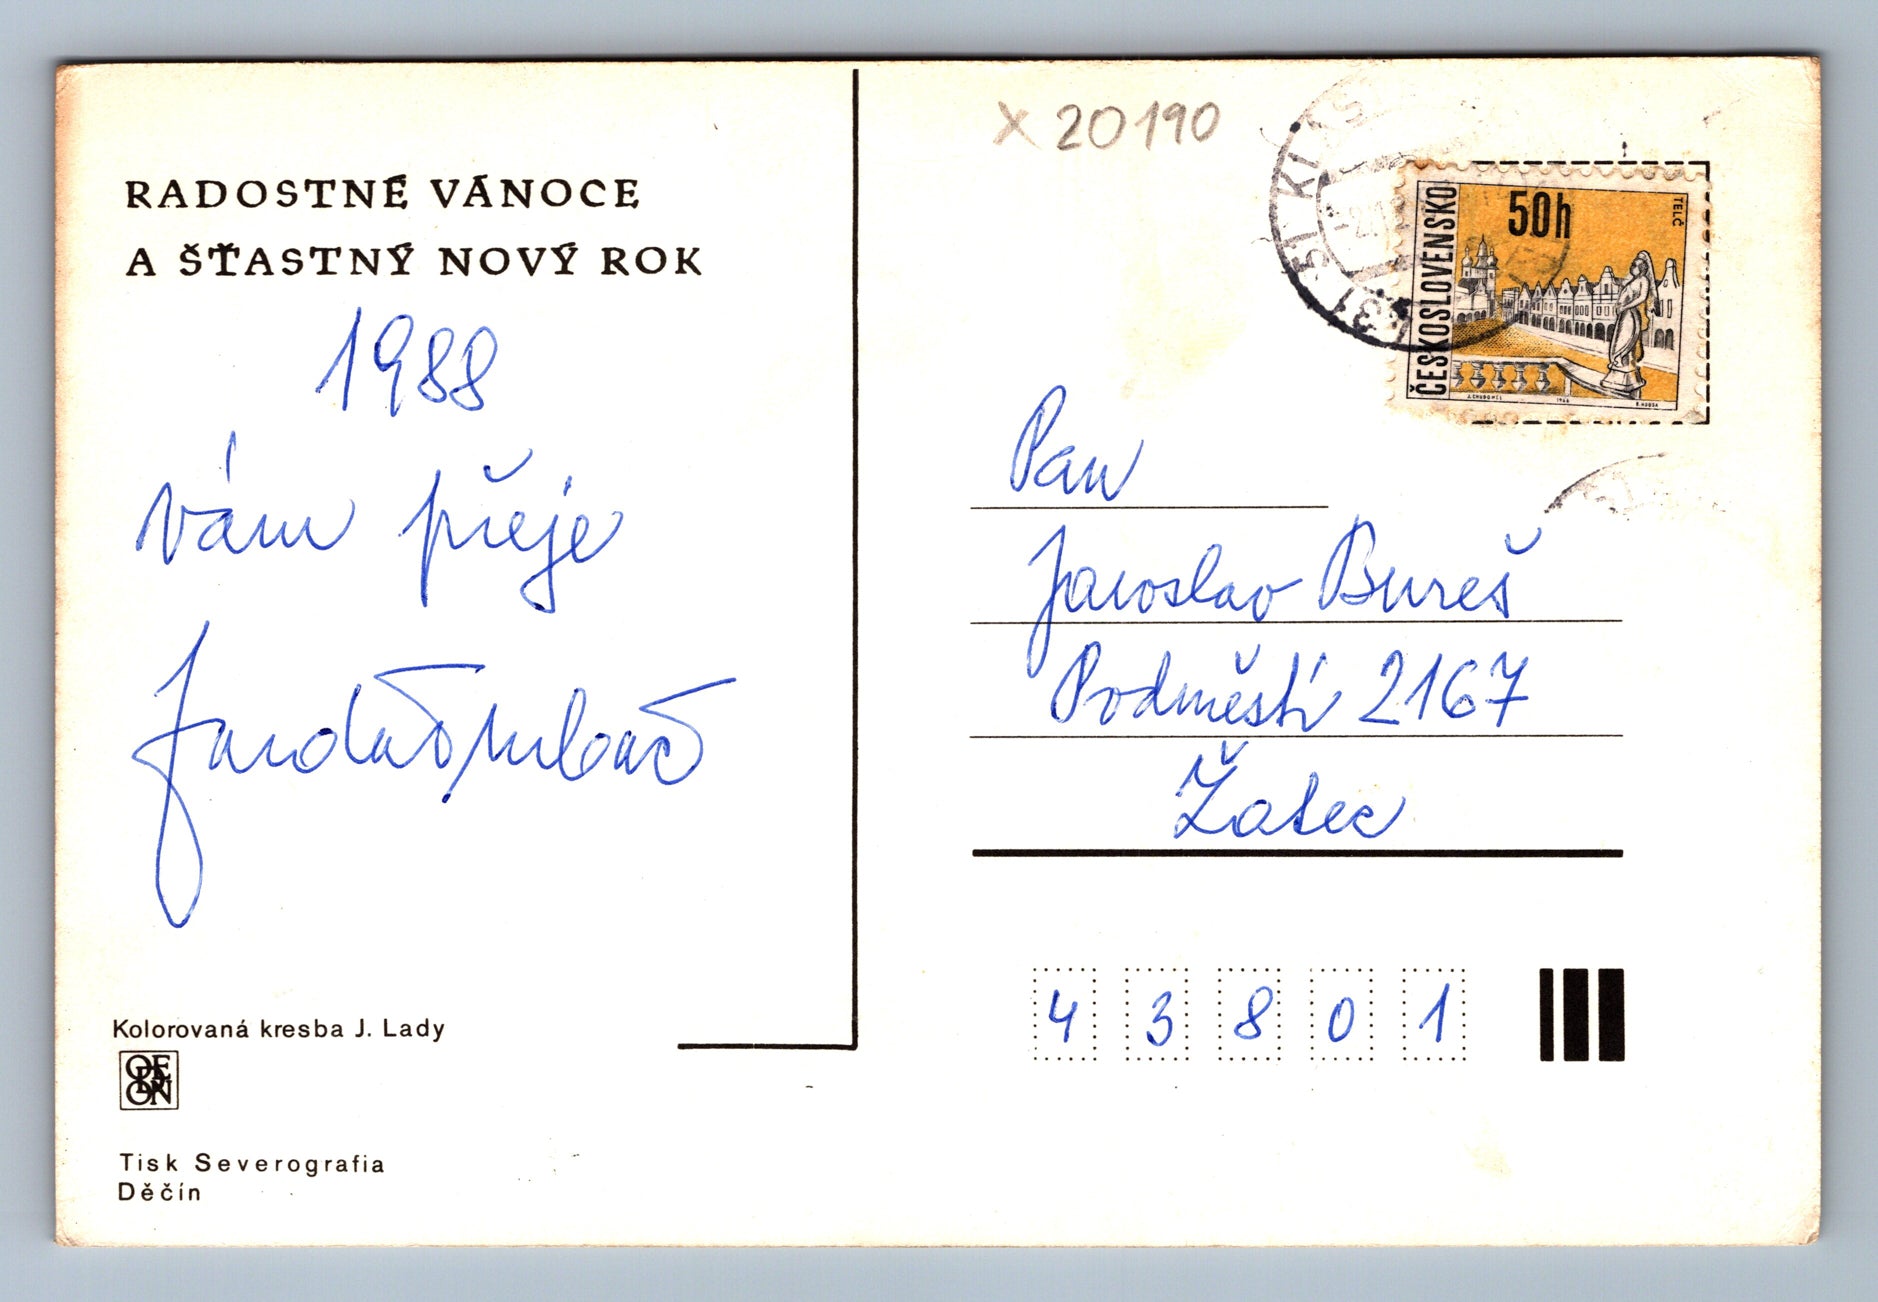 RADOSTNÉ VÁNOCE
A ŠŤASTNÝ NOVÝ ROK
1988
vám přeje
Kolorovaná kresba J. Lady
ODEON
Tisk Severografia
Děčín
x 20190
ČESKOSLOVENSKO
50h
TELČ
J. CHUDOMEL
1966
Pan
Jaroslav Bureš
Podměstí 2167
Žatec
43801